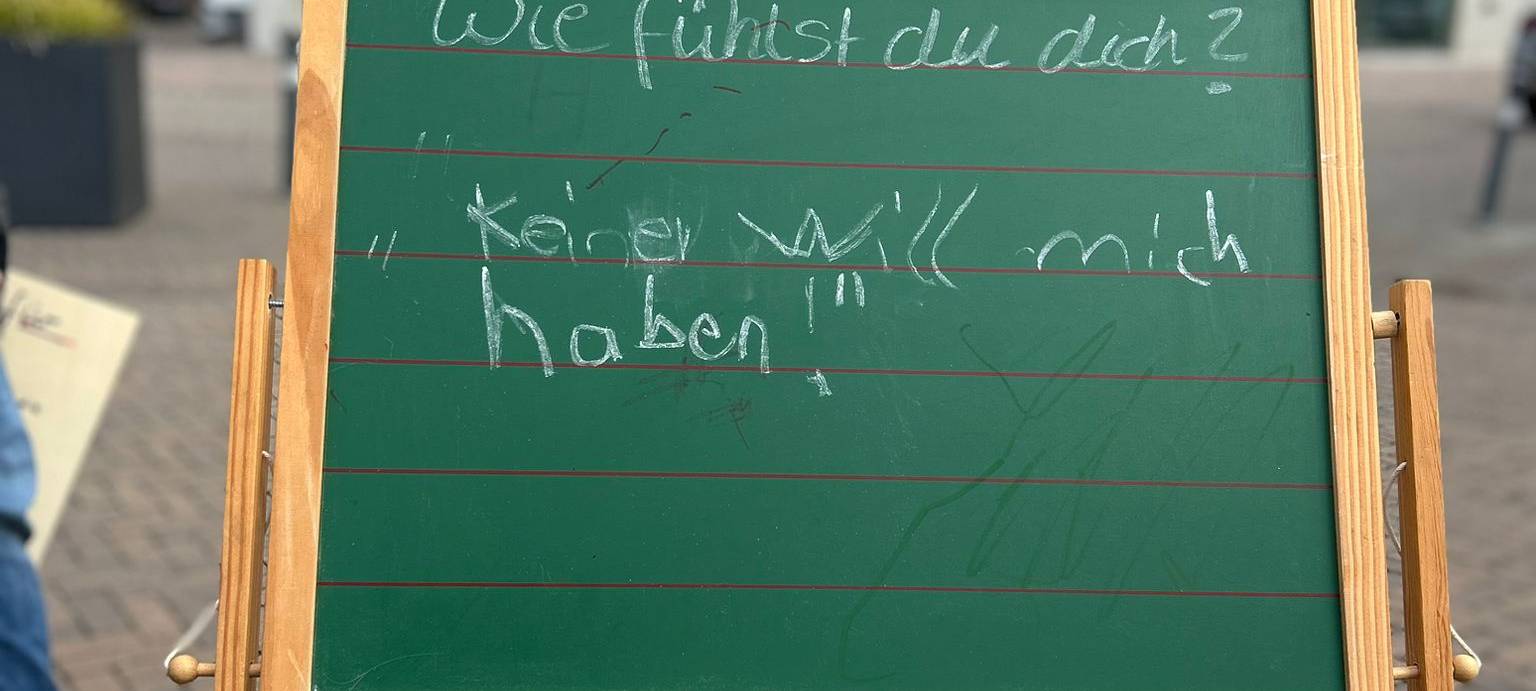 Wie fühlst du dich?
" Keiner will mich
haben!"